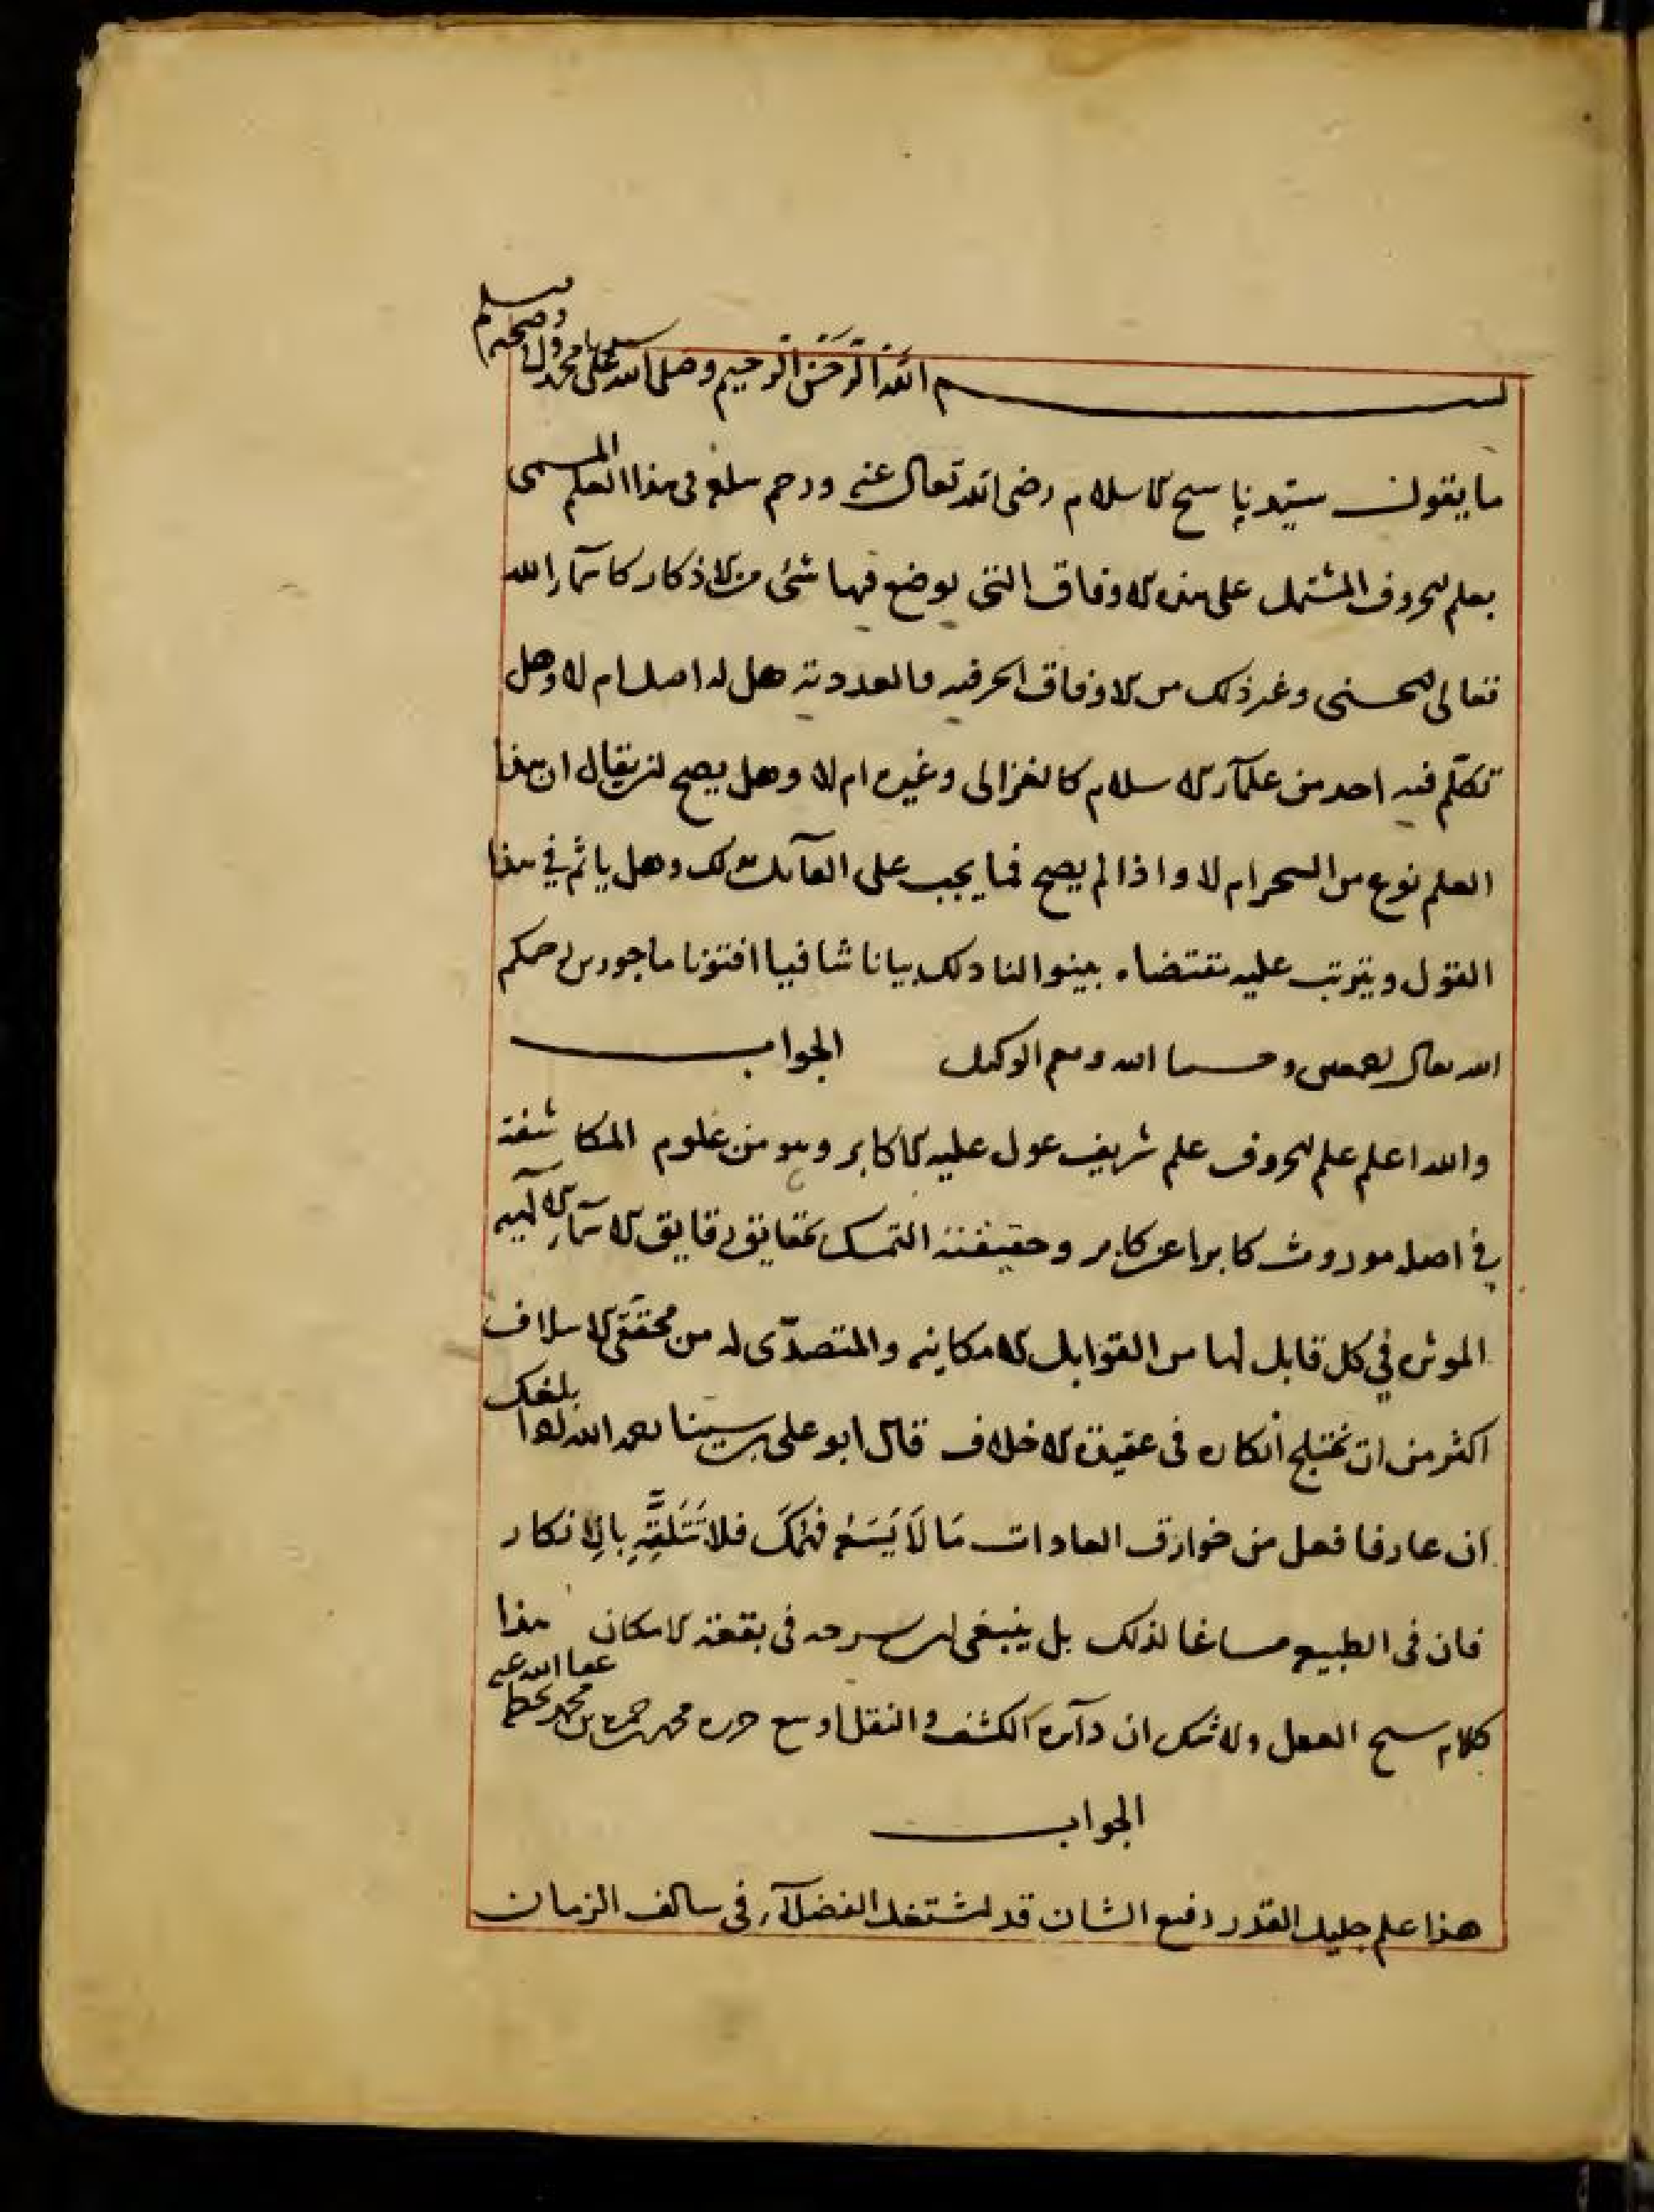 بسم الله الرحمن الرحيم وصلى الله على محمد واله وصحبه وسلم
ما يقول سيدنا شيخ الاسلام رضى الله تعالى عنه ورحم سلفه فى هذا العلم المسمى
بعلم الحروف المشتمل على هذه الاوفاق التى يوضع فيها شئ من الاذكار كاسمآء الله
تعالى الحسنى وغير ذلك من الاوفاق الحرفيه والعدديه هل له اصل ام لا وهل
تكلم فيه احد من علمآء الاسلام كالغزالى وغيره ام لا وهل يصح ان يقال ان هذا
العلم نوع من السحر ام لا واذا لم يصح فما يجب على القآئل بذلك وهل ياثم في هذا
القول ويترتب عليه مقتضاه بينوا لنا ذلك بيانا شافيا افتونا ماجورين رحمكم
الله تعالى اجمعين وحسبنا الله ونعم الوكيل الجواب
والله اعلم علم الحروف علم شريف عول عليه الاكابر وهو من علوم المكاشفة
في اصله موروث كابرا عن كابر وحقيقته التمسك بحقايق رقايق الاسمآء الالهيه
الموثره في كل قابل لها من القوابل الامكانيه والمتصدّى له من محققى الاسلاف
اكثر من ان يختلج انكاره فى عقيدة الاخلاف قال ابو على بن سينا رحمه الله اذا بلغك
ان عارفا فعل من خوارق العادات مَا لَا يَسَعُ فهمك فلا تَتَلَقَّهِ بالانكار
فان فى الطبيعه مساغا لذلك بل ينبغى ان يسرحه فى بقعة الامكان هذا
كلام شيخ العقل ولا شك ان دآئرة الكشف والنقل اوسع حرره محمد بن حمزه بن محمد عفا الله عنه
الجواب
هذا علم جليل القدر رفيع الشان قد اشتغل الفضلآء فى سالف الزمان